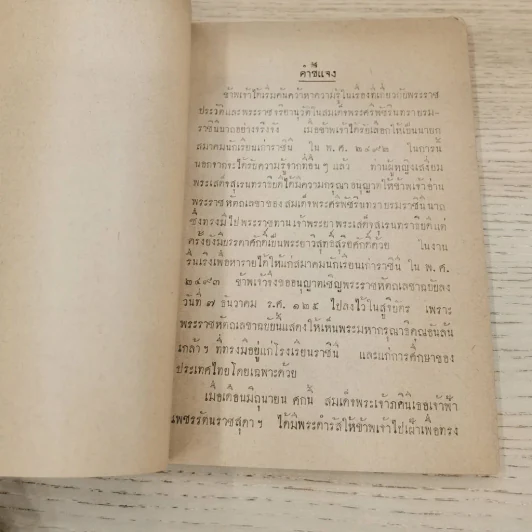 คำชี้แจง
ข้าพเจ้าได้เริ่มค้นคว้าหาความรู้ในเรื่องที่เกี่ยวกับพระราช
ประวัติและพระราชจริยานุวัติในสมเด็จพระศรีพัชรินทราบรม-
ราชินีนาถอย่างจริงจัง เมื่อข้าพเจ้าได้รับเลือกให้เป็นนายก
สมาคมนักเรียนเก่าราชินี ใน พ.ศ. ๒๔๙๒ ในการนี้
นอกจากจะได้รับความรู้จากที่อื่น ๆ แล้ว ท่านผู้หญิงเสงี่ยม
พระเสด็จสุเรนทราธิบดีได้มีความกรุณาอนุญาตให้ข้าพเจ้าอ่าน
พระราชหัตถเลขาของสมเด็จพระศรีพัชรินทราบรมราชินีนาถ
ซึ่งทรงมีไปพระราชทานเจ้าพระยาพระเสด็จสุเรนทราธิบดีแต่
ครั้งยังมีบรรดาศักดิ์เป็นพระยาวิสุทธสุริยศักดิ์ด้วย ในงาน
รื่นเริงเพื่อหารายได้ให้แก่สมาคมนักเรียนเก่าราชินี ใน พ.ศ.
๒๔๙๓ ข้าพเจ้าจึงขออนุญาตเชิญพระราชหัตถเลขาฉบับลง
วันที่ ๗ ธันวาคม ร.ศ. ๑๒๕ ไปลงไว้ในสูจิบัตร เพราะ
พระราชหัตถเลขาฉบับนี้แสดงให้เห็นพระมหากรุณาธิคุณอันล้น
เกล้า ฯ ที่ทรงมีอยู่แก่โรงเรียนราชินี และแก่การศึกษาของ
ประเทศไทยโดยเฉพาะด้วย
เมื่อเดือนมิถุนายน ศกนี้ สมเด็จพระเจ้าภคินีเธอเจ้าฟ้า
เพชรรัตนราชสุดา ฯ ได้มีพระดำรัสให้ข้าพเจ้าไปเฝ้าเพื่อทรง